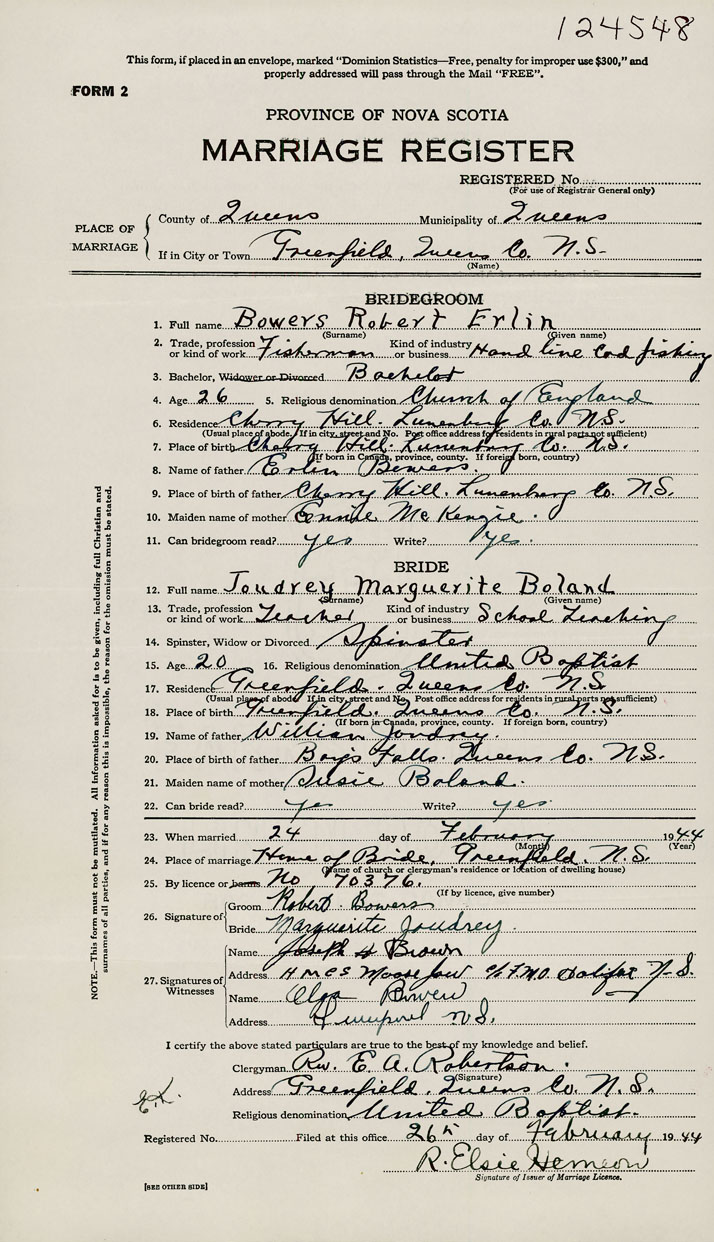 124548
This form, if placed in an envelope, marked "Dominion Statistics—Free, penalty for improper use $300," and
properly addressed will pass through the Mail "FREE".
FORM 2
PROVINCE OF NOVA SCOTIA
MARRIAGE REGISTER
REGISTERED No.
(For use of Registrar General only)
PLACE OF MARRIAGE
County of Queens Municipality of Queens
If in City or Town Greenfield, Queens Co. N.S.
(Name)
BRIDEGROOM
1. Full name Bowers Robert Erlin
(Surname) (Given name)
2. Trade, profession or kind of work Fisherman Kind of industry or business Hand line Cod fishing
3. Bachelor, Widower or Divorced Bachelor
4. Age 26 5. Religious denomination Church of England
6. Residence Cherry Hill Lunenburg Co. N.S.
(Usual place of abode. If in city, street and No. Post office address for residents in rural parts not sufficient)
7. Place of birth Cherry Hill. Lunenburg Co. N.S.
(If born in Canada, province, county. If foreign born, country)
8. Name of father Erlin Bowers.
9. Place of birth of father Cherry Hill. Lunenberg Co. N.S.
10. Maiden name of mother Ennie McKenzie.
11. Can bridegroom read? yes Write? yes.
BRIDE
12. Full name Joudrey Marguerite Boland
(Surname) (Given name)
13. Trade, profession or kind of work Teacher Kind of industry or business School Teaching
14. Spinster, Widow or Divorced Spinster
15. Age 20 16. Religious denomination United Baptist
17. Residence Greenfield. Queens Co. N.S.
(Usual place of abode. If in city, street and No. Post office address for residents in rural parts not sufficient)
18. Place of birth Greenfield. Queens Co. N.S.
(If born in Canada, province, county. If foreign born, country)
19. Name of father William Joudrey.
20. Place of birth of father Bangs Falls. Queens Co. N.S.
21. Maiden name of mother Susie Boland.
22. Can bride read? yes Write? yes
23. When married 24 day of February 1944
(Month) (Year)
24. Place of marriage Home of Bride, Greenfield. N.S.
(Name of church or clergyman's residence or location of dwelling house)
25. By licence or banns No 70376.
(If by licence, give number)
26. Signature of
Groom Robert Bowers
Bride Marguerite Joudrey.
27. Signatures of Witnesses
Name Joseph H Brown
Address HMCS Moose Jaw c/o F.M.O. Halifax N.S.
Name Olga Bowers
Address Liverpool N.S.
I certify the above stated particulars are true to the best of my knowledge and belief.
Clergyman Rev. E. A. Robertson.
(Signature)
Address Greenfield, Queens Co. N.S.
Religious denomination United Baptist.
Registered No. Filed at this office 26th day of February 1944
R. Elsie Hemeon
Signature of Issuer of Marriage Licence.
[SEE OTHER SIDE]
NOTE.—This form must not be mutilated. All information asked for is to be given, including full Christian and
surnames of all parties, and if for any reason this is impossible, the reason for the omission must be stated.